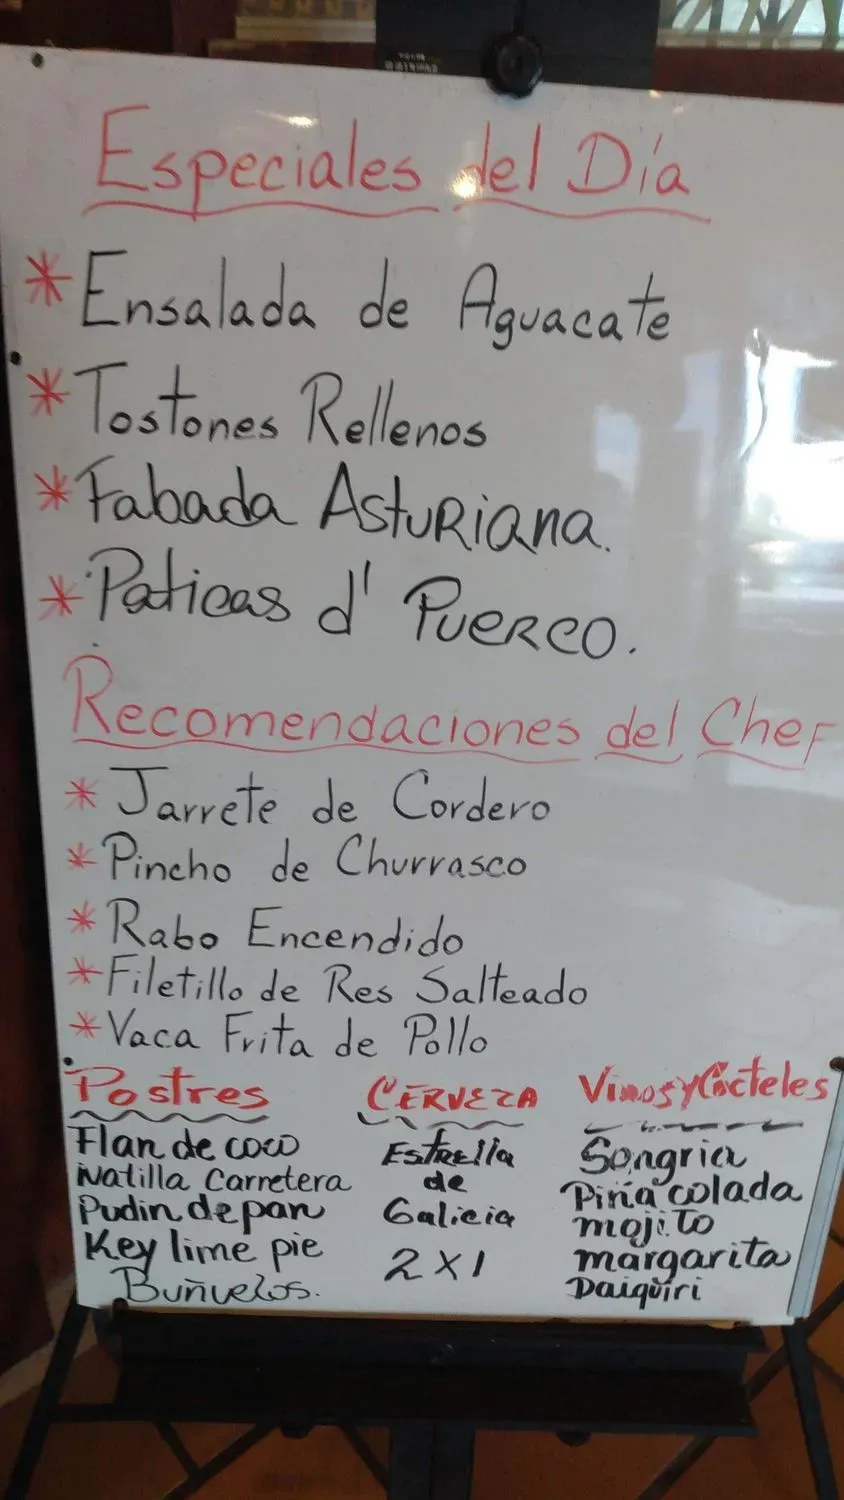 Especiales del Día
* Ensalada de Aguacate
* Tostones Rellenos
* Fabada Asturiana.
* Paticas d' Puerco.
Recomendaciones del Chef
* Jarrete de Cordero
* Pincho de Churrasco
* Rabo Encendido
* Filetillo de Res Salteado
* Vaca Frita de Pollo
Postres
Flan de coco
Natilla Carretera
Pudin de pan
Key lime pie
Buñuelos.
CERVEZA
Estrella
de
Galicia
2 X 1
Vinos y Cócteles
Sangria
Piña colada
mojito
margarita
Daiquiri